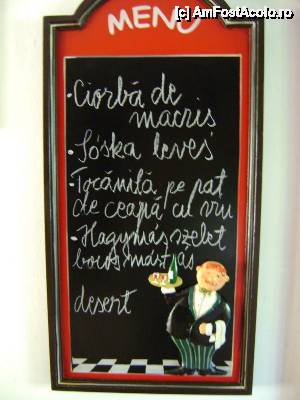 (c) AmFostAcolo.ro
MENU
• Ciorbă de
macris
• Sóska leves
• Tocăniță pe pat
de ceapă cu vin
• Hagymás szelet
boros mártás
desert